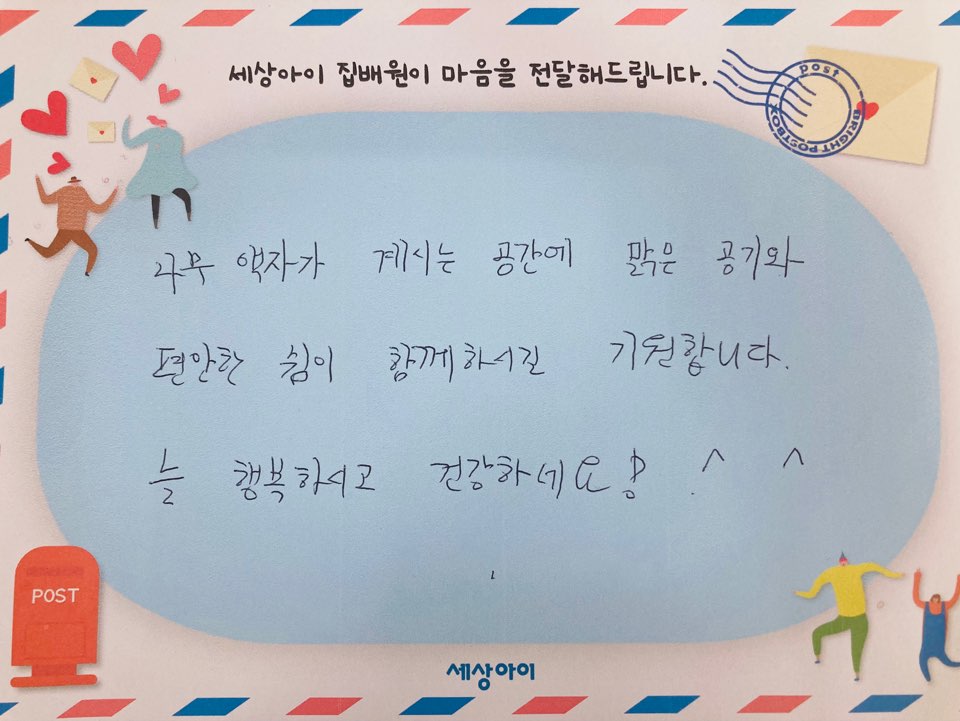 세상아이 집배원이 마음을 전달해드립니다.
post
BRIGHT POSTBOX
나무 액자가 계시는 공간에 맑은 공기와
편안한 쉼이 함께하시길 기원합니다.
늘 행복하시고 건강하세요! ^ ^
POST
세상아이